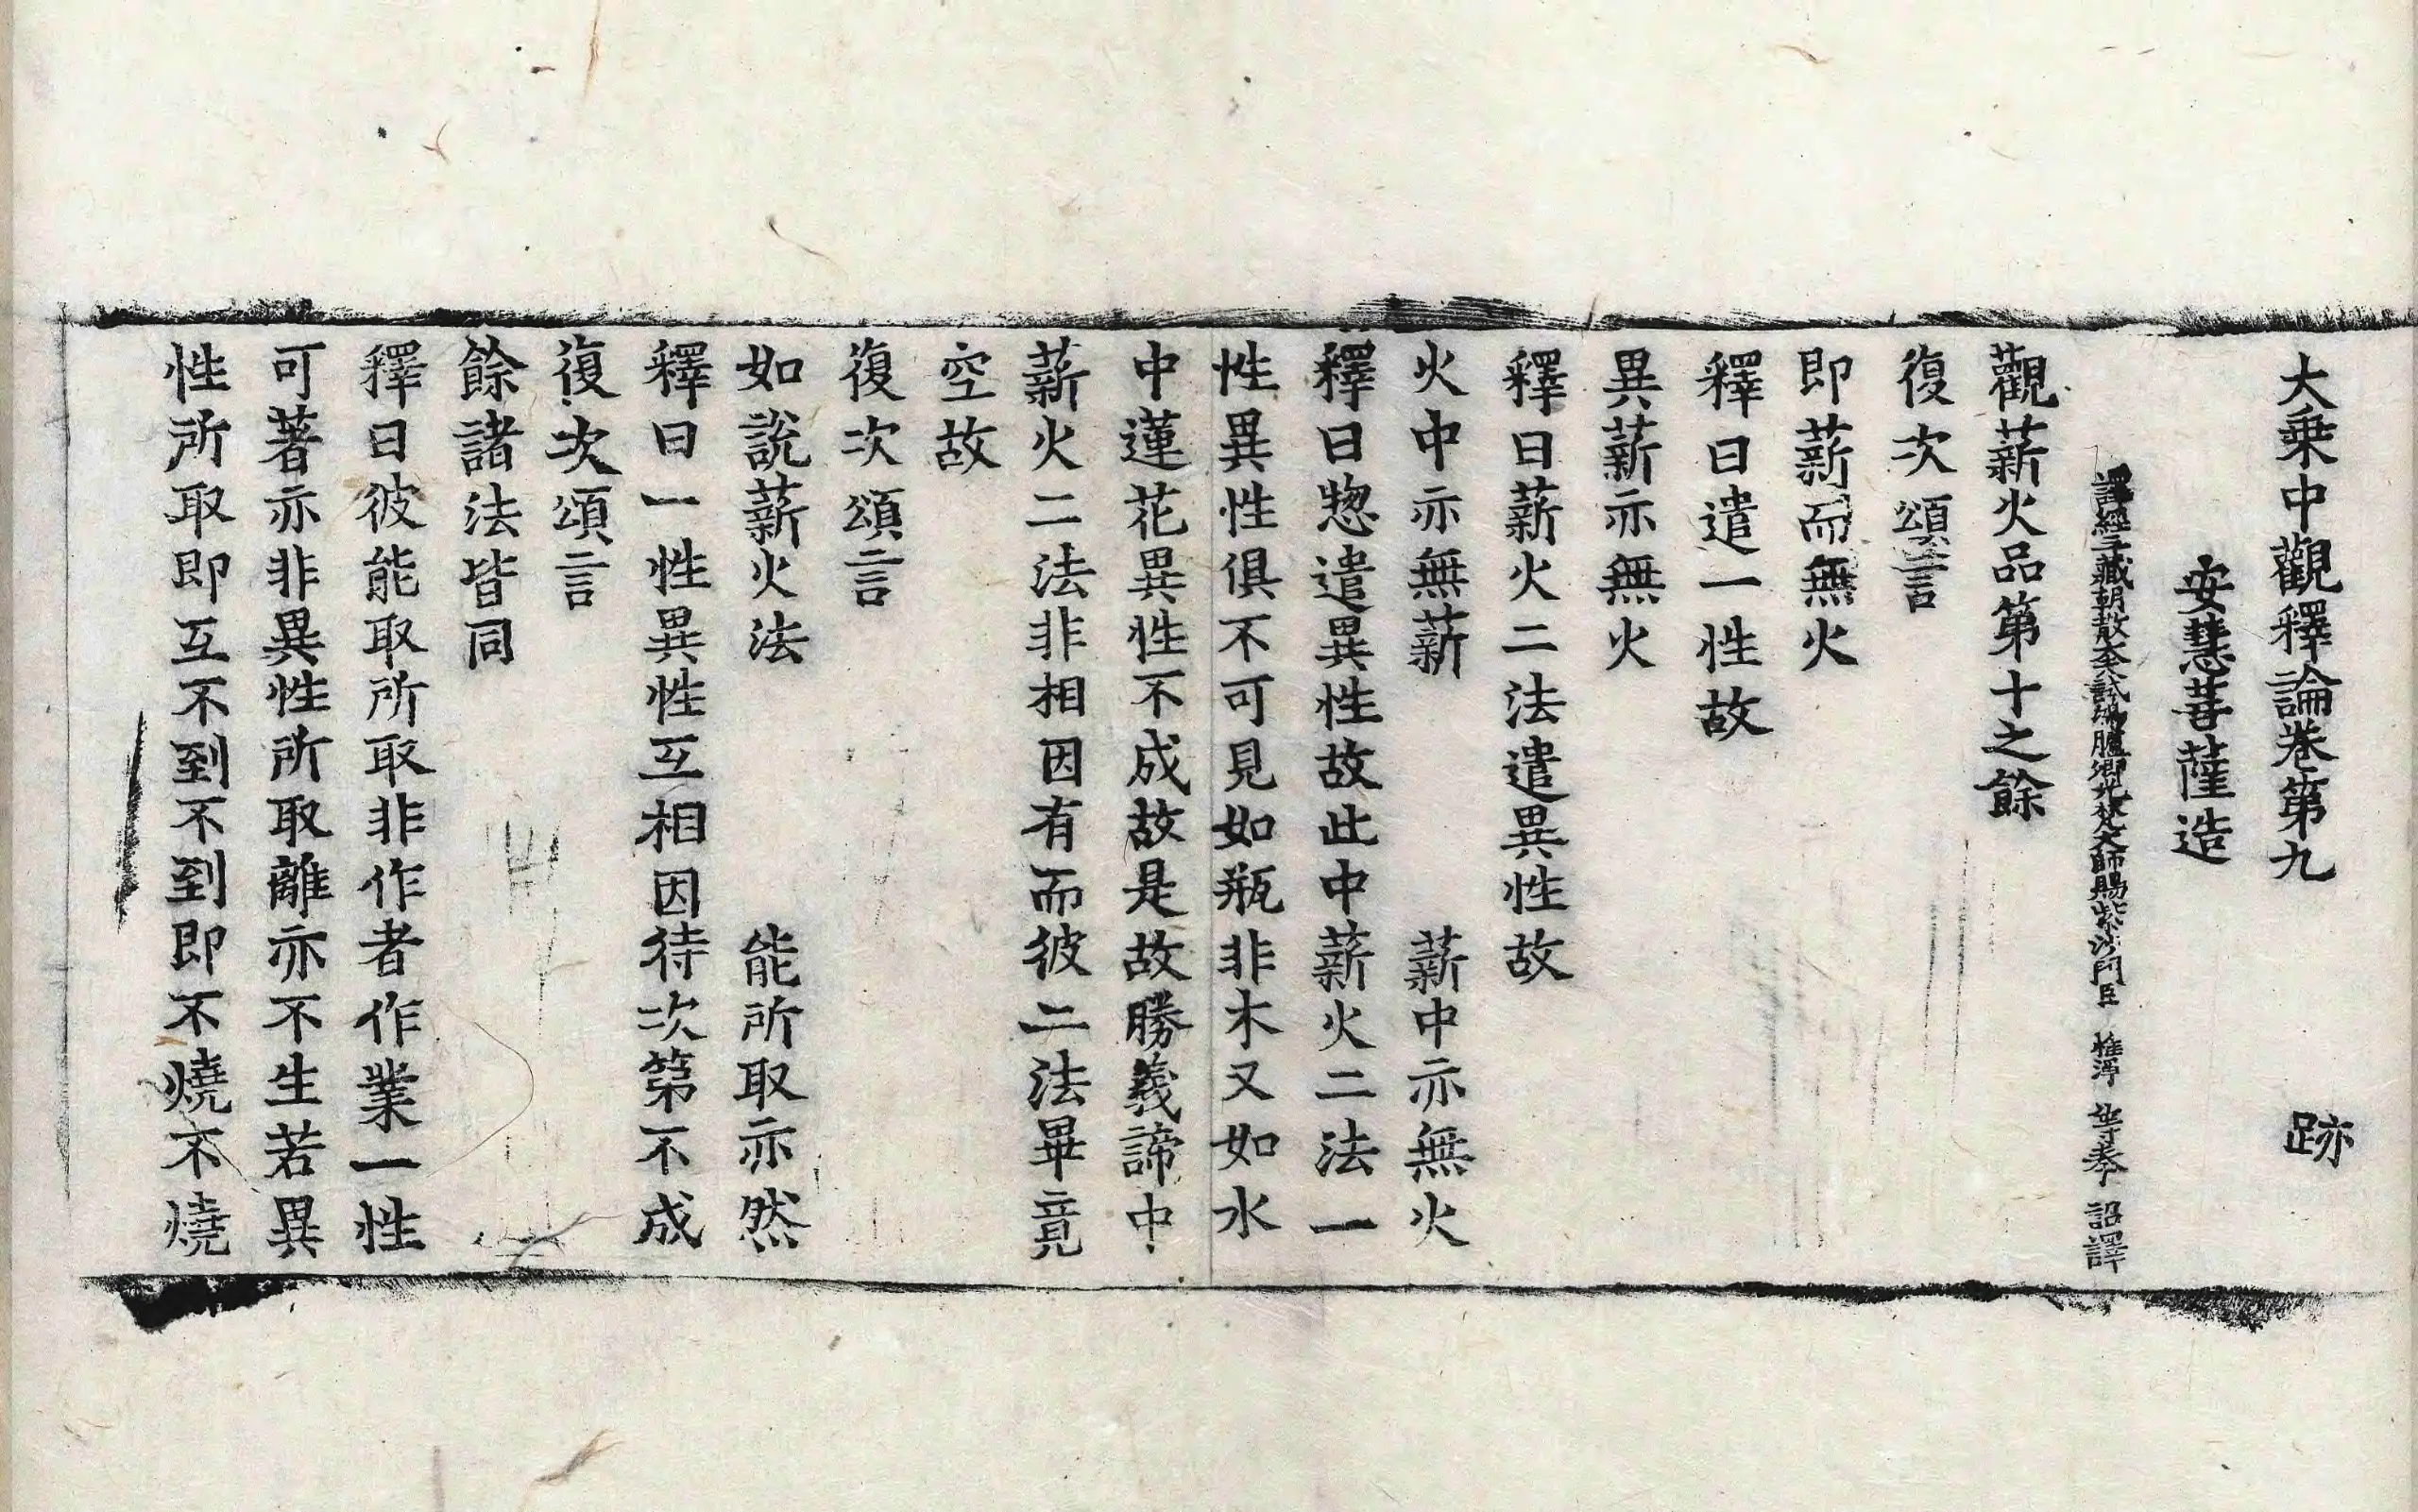 大乗中觀釋論卷第九　跡
安慧菩薩造
譯經三藏朝散大夫試鴻臚卿光梵大師賜紫沙門臣　惟淨　等奉　詔譯
觀薪火品第十之餘
復次頌言
即薪而無火
釋曰遣一性故
異薪亦無火
釋曰薪火二法遣異性故
火中亦無薪　薪中亦無火
釋曰惣遣異性故此中薪火二法一
性異性俱不可見如瓶非木又如水
中蓮花異性不成故是故勝義諦中
薪火二法非相因有而彼二法畢竟
空故
復次頌言
如說薪火法　能所取亦然
釋曰一性異性互相因待次第不成
復次頌言
餘諸法皆同
釋曰彼能取所取非作者作業一性
可著亦非異性所取離亦不生若異
性所取即互不到不到即不燒不燒